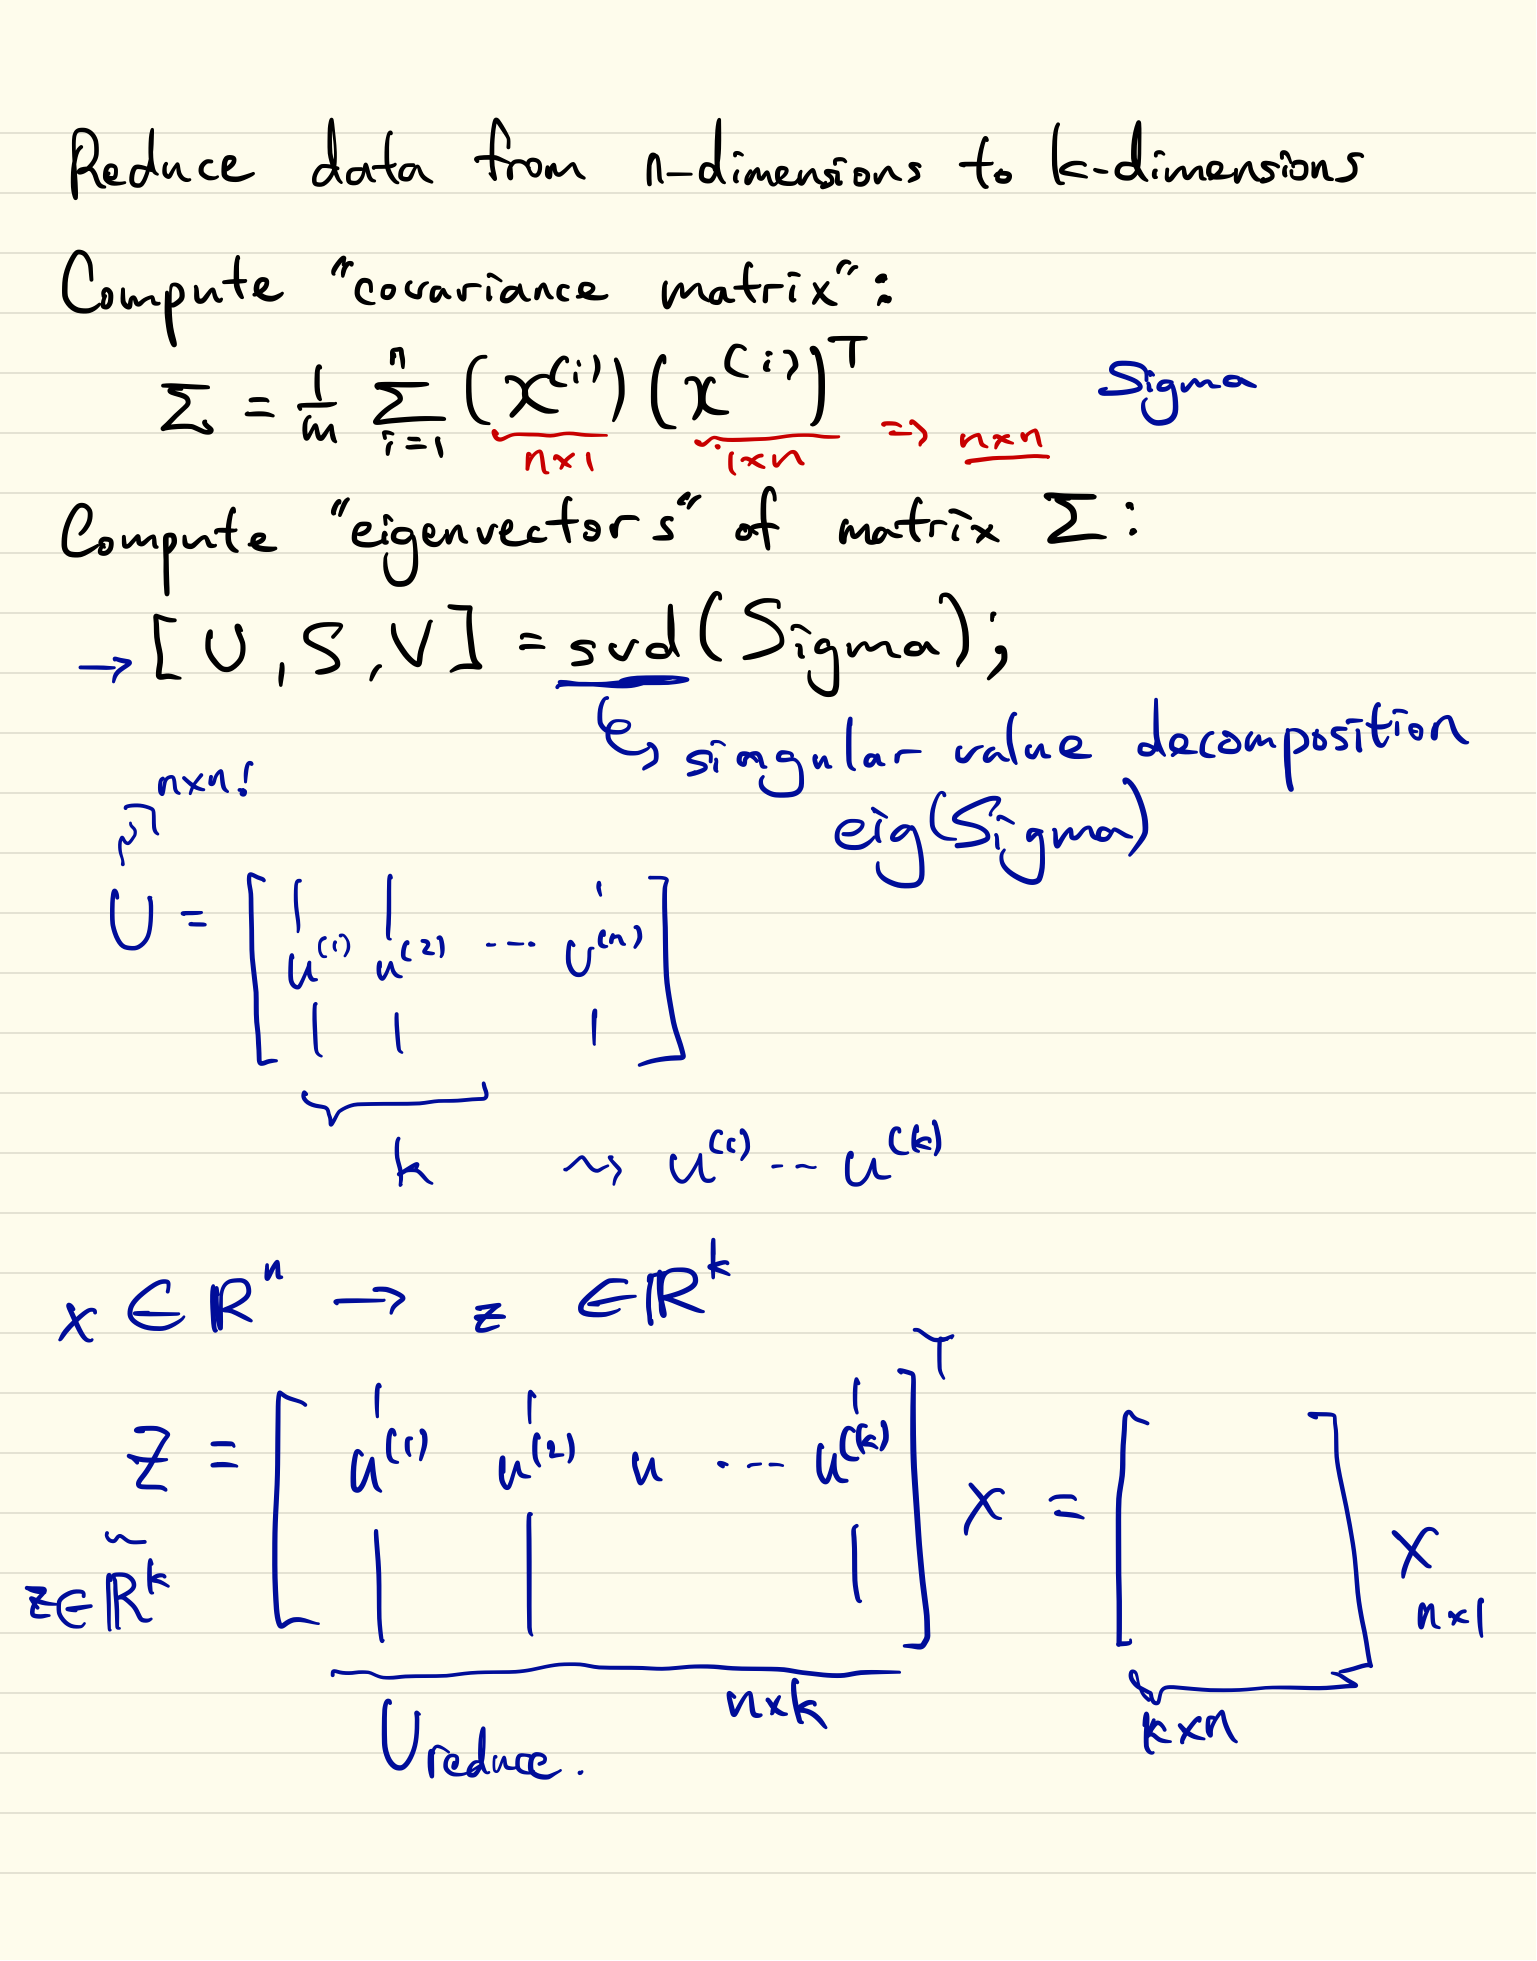 Reduce data from n-dimensions to k-dimensions
Compute "covariance matrix":
Σ = 1/m Σ_{i=1}^{n} (x^(i)) (x^(i))^T Sigma
n×1 1×n => n×n
Compute "eigenvectors" of matrix Σ:
→ [U, S, V] = svd(Sigma);
↳ singular value decomposition
n×n!
eig(Sigma)
U = [ u^(1) u^(2) ... u^(n) ]
k ⇝ u^(1) ... u^(k)
x ∈ ℝ^n → z ∈ ℝ^k
z = [ u^(1) u^(2) u ... u^(k) ]^T x = [ ] x
z ∈ ℝ^k n×1
n×k k×n
U_reduce.